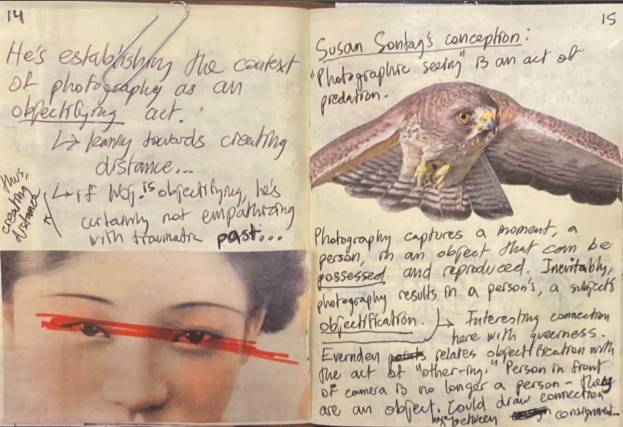 14
He's establishing the context
of photography as an
objectifying act.
↳ leaning towards creating
distance...
↳ if Woj. is objectifying, he's
certainly not empathizing
with traumatic past...
thus,
creating
distance
15
Susan Sontag's conception:
"Photographic seeing" is an act of
predation.
Photography captures a moment, a
person, in an object that can be
possessed and reproduced. Inevitably,
photography results in a person's, a subject's
objectification.
↳ Interesting connection
here with queerness.
Evernden relates objectification with
the act of "other-ing." Person in front
of camera is no longer a person - they
are an object. Could draw connection
between consignment...